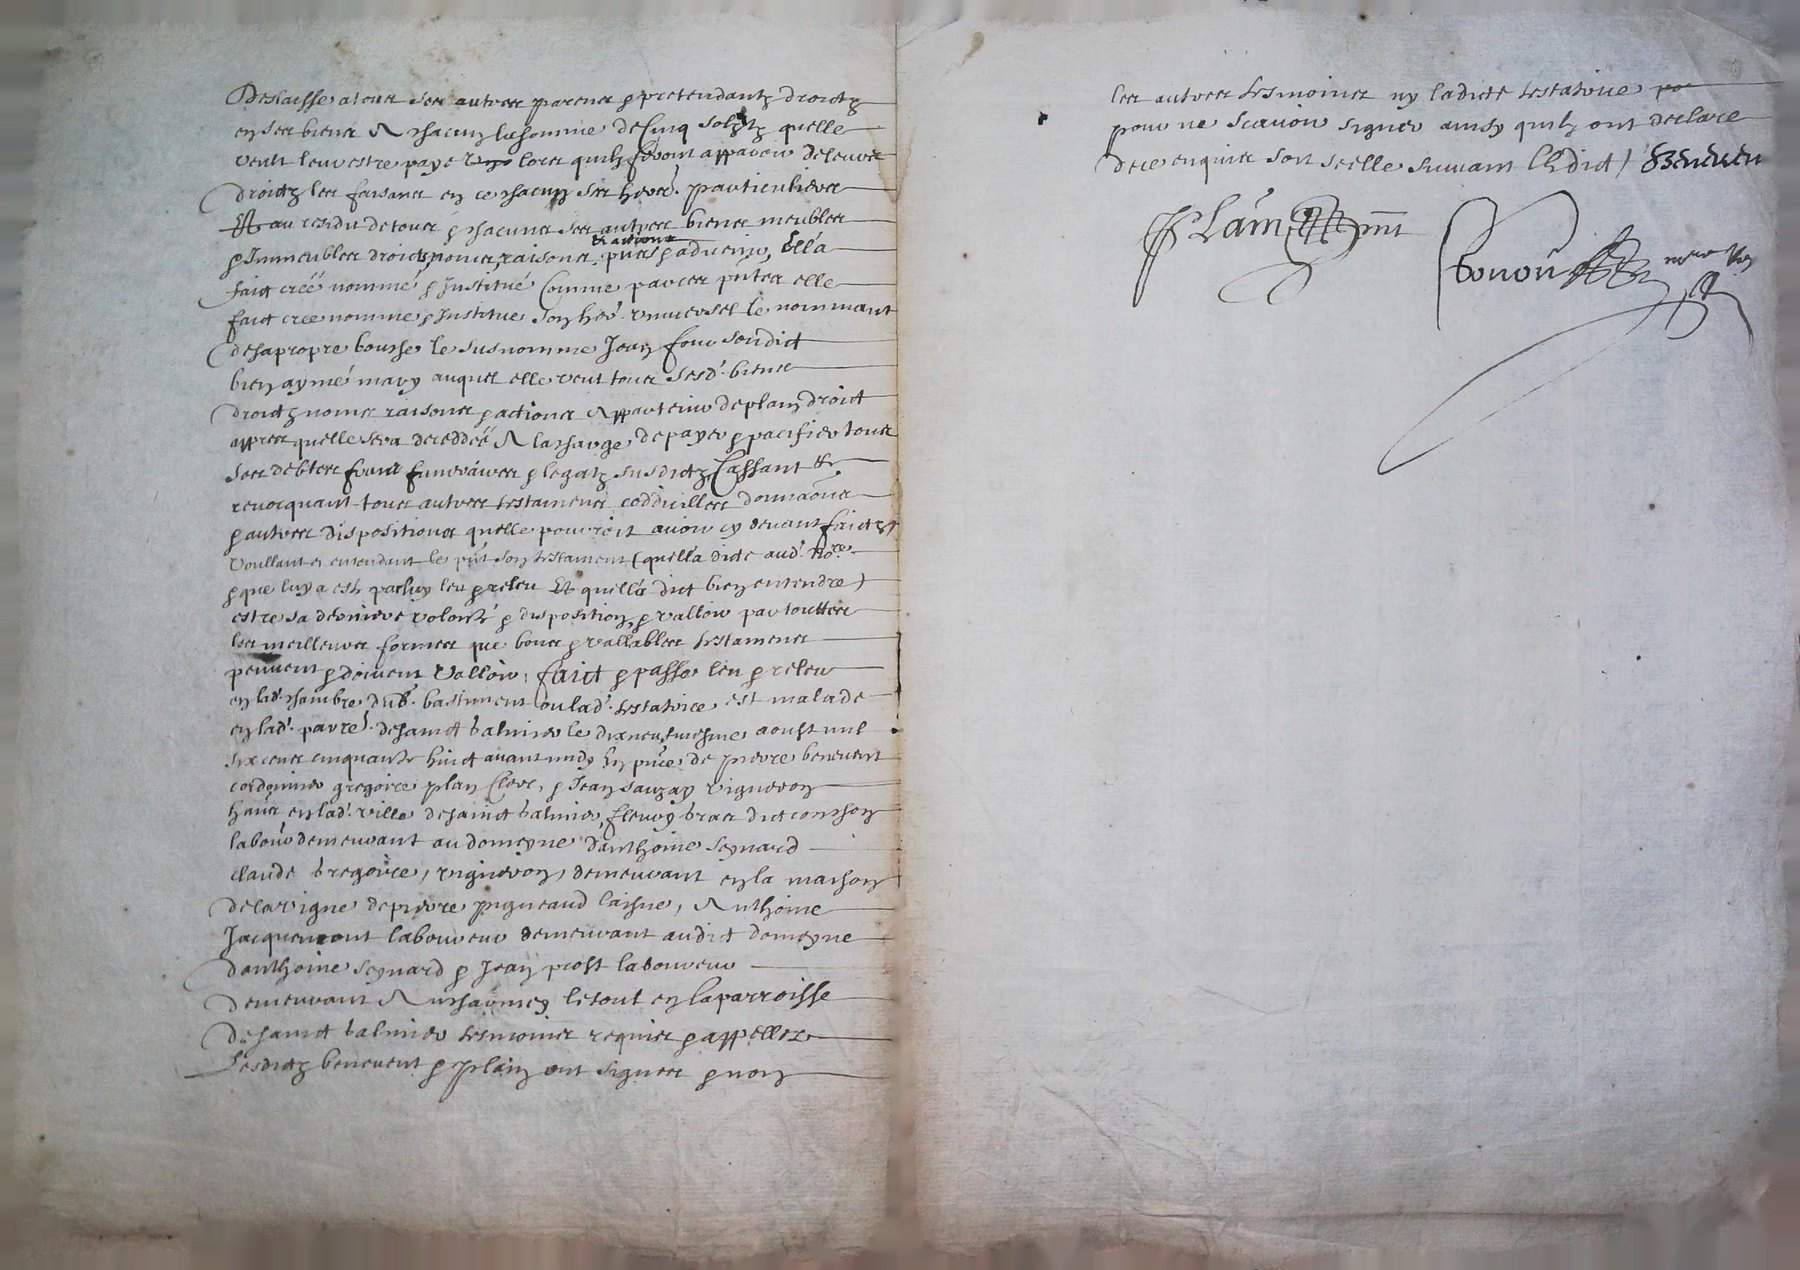 Deslaisse a tous ses autres parens & pretendantz droictz
en ses biens A chacun la somme de Cinq solz tz quelle
veult leur estre payé lors quilz feront apparoir de leurs
droictz les faisans en ce chacun ses herers. particuliers
Et au residu de tous & chacuns ses autres biens meubles
& Immeubles droictz, noms, raisons, & actions pnts & advenir, Ell'a
faict creé nommé & Institué Comme par ces pntes elle
faict cree nomme & Institue Son her. universel le nommant
de sa propre bouche le susnomme Jean four sondict
bien aymé mary auquel elle veut tous sesd. biens
droictz noms raisons & actions Appartenir de plain droict
appres quelle sera deceddée A la charge de payer & pacifier tous
ses debtes fraiz funeraires & legatz susdictz Cassant &
revocquant tous autres testamens coddicilles donnaons
& autres dispositions quelle pourroit avoir cy devant faictz
Voullant & entendant le pnt son testament (quell'a dicte aud. nore.
& que luy a esté par luy leu & releu Et quell'a dict bien entendre)
estre sa derniere volonté & disposition, & valloir par touttes
les meilleures formes que bons & vallables testamens
peuvent & doivent Valloir, faict & passe leu & releu
en lad. chambre dud. bastiment ou lad. testatrice est malade
en lad. parre. de sainct balmier le dixneufviesme aoust mil
six cens cinquante huict avant midy En pnce de pierre benevent
cordonnier gregoire plan Clerc, & Jean sauzay vigneron
hans en lad. ville de sainct balmier, fleury bras dict conchon
labour demeurant au domeyne d'anthoine seynard
claude gregoire, vigneron, demeurant en la maison
de la vigne de pierre pigneaud laisne, Anthoine
Jacquemont laboureur demeurant audict domeyne
d'anthoine seynard & Jean prost laboureur
demeurant A le tout en la parroisse
de sainct balmier tesmoins requis & appellez
Lesdictz benevent & plain ont signes & non
les autres tesmoins ny ladicte testatrice po
pour ne scavoir signer ainsy quilz ont declare
de ce enquis soit scelle suivant l'Edict / Beneven
Plain